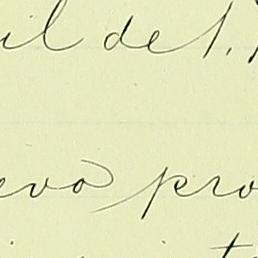 il de 1.
evo pro